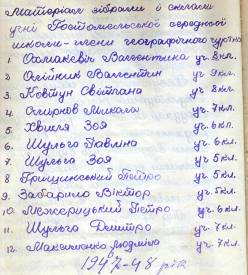 Матеріали зібрали і склали
учні Гостомельської середньої
школи - члени географічного гуртка
1. Охмакевіч Валентина уч. 8 кл.
2. Олійник Валентин уч 9 кл.
3. Ковтун Світлана уч 8 кл.
4. Смирнов Микола уч. 7 кл.
5. Хвиля Зоя уч. 6 кл.
6. Шульга Павлина уч. 6 кл
7. Шульга Зоя уч 5 кл.
8 Грищинський Петро уч. 5 кл.
9. Забарило Віктор уч. 5 кл.
10. Межерицький Петро уч. 6 кл
11. Шульга Дмитро уч. 7 кл
12. Максименко Людмила уч. 7 кл.
1947-48 р/к